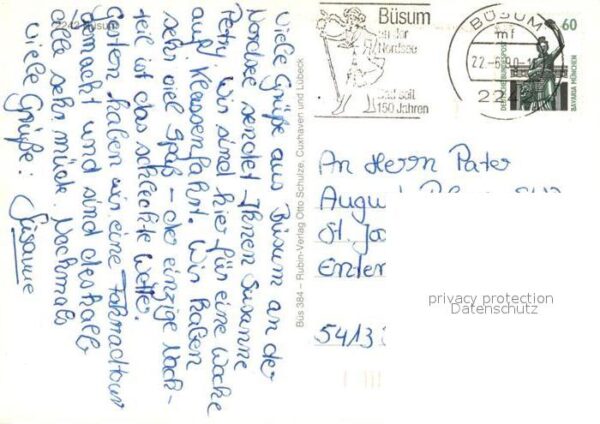 2242 Büsum
Viele Grüße aus Büsum an der
Nordsee sendet Ihnen Susanne
Petry. Wir sind hier für eine Woche
auf Klassenfahrt. Wir haben
sehr viel Spaß - der einzige Nach-
teil ist das schlechte Wetter.
Gestern haben wir eine Fahrradtour
gemacht und sind deshalb
alle sehr müde. Nochmals
viele Grüße:
Susanne
Büs 384 – Rubin-Verlag Otto Schulze, Cuxhaven und Lübeck
Büsum
an der
Nordsee
Bad seit
150 Jahren
BÜSUM
mf
22.-6.90.-1
224
60
DEUTSCHE BUNDESPOST
BAVARIA MÜNCHEN
An Herrn Pater
August
St. Ja
5413
privacy protection
Datenschutz